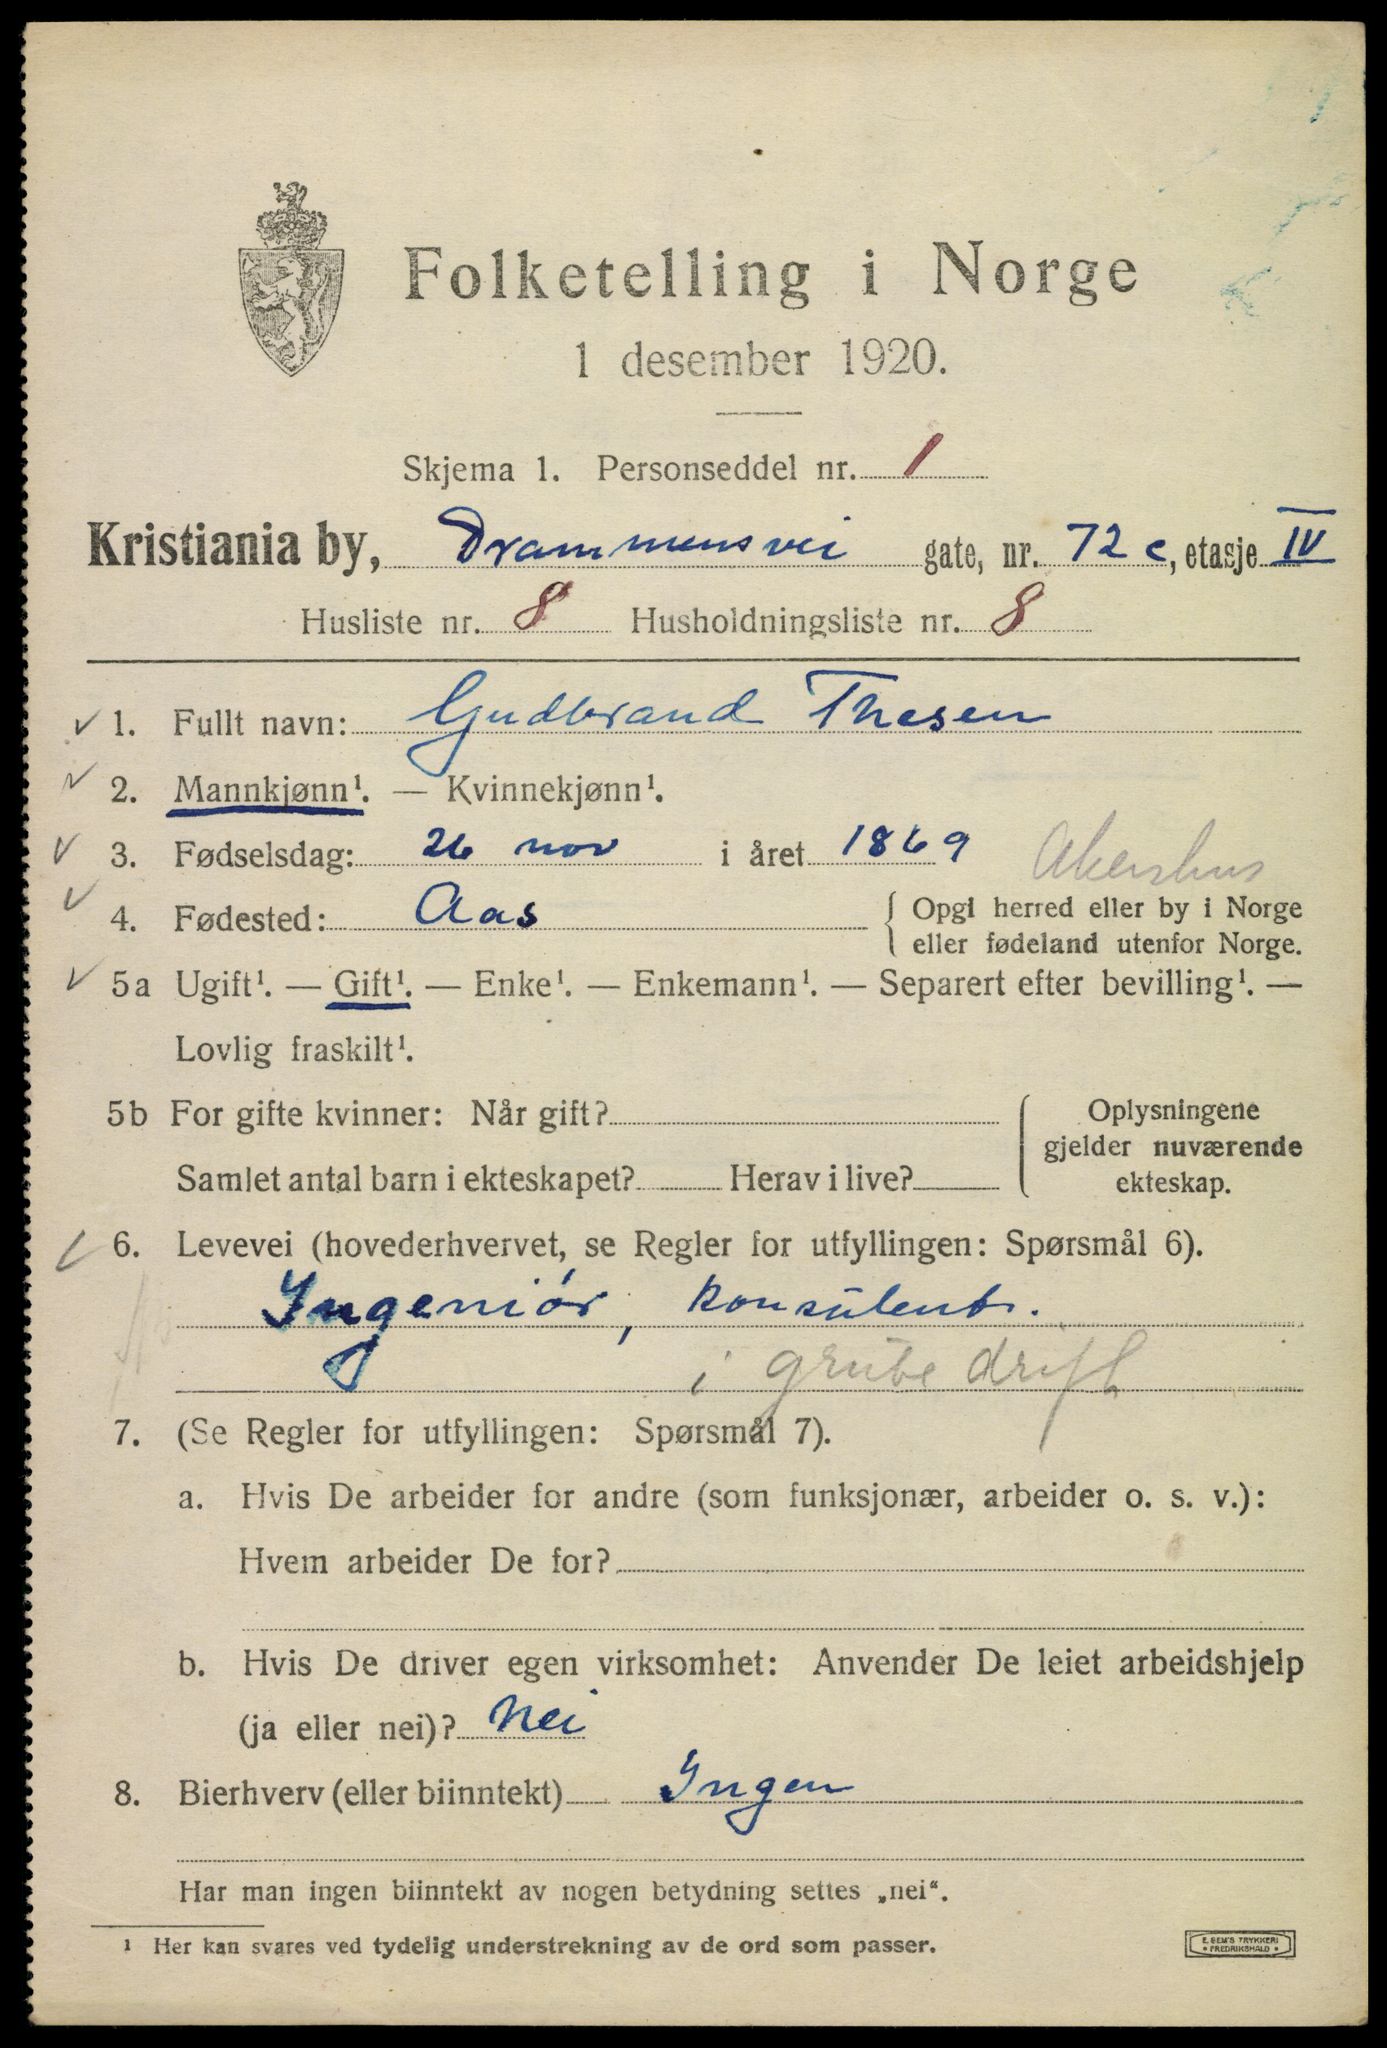 Folketelling i Norge
1 desember 1920.
Skjema 1. Personseddel nr. 1
Kristiania by, Drammensvei gate, nr. 72 c, etasje IV
Husliste nr. 8 Husholdningsliste nr. 8
1. Fullt navn: Gudbrand Thesen
2. Mannkjønn¹. — Kvinnekjønn¹.
3. Fødselsdag: 26 nov i året 1869 Akershus
4. Fødested: Aas { Opgi herred eller by i Norge
eller fødeland utenfor Norge.
5a Ugift¹. — Gift¹. — Enke¹. — Enkemann¹. — Separert efter bevilling¹. —
Lovlig fraskilt¹.
5b For gifte kvinner: Når gift? { Oplysningene
gjelder nuværende
Samlet antal barn i ekteskapet? Herav i live? ekteskap.
6. Levevei (hovederhvervet, se Regler for utfyllingen: Spørsmål 6).
Ingeniór, konsulent.
i grube drift
7. (Se Regler for utfyllingen: Spørsmål 7).
a. Hvis De arbeider for andre (som funksjonær, arbeider o. s. v.):
Hvem arbeider De for?
b. Hvis De driver egen virksomhet: Anvender De leiet arbeidshjelp
(ja eller nei)? Nei
8. Bierhverv (eller biinntekt) Ingen
Har man ingen biinntekt av nogen betydning settes „nei“.
¹ Her kan svares ved tydelig understrekning av de ord som passer.
E. SEM'S TRYKKERI
• FREDRIKSHALD •